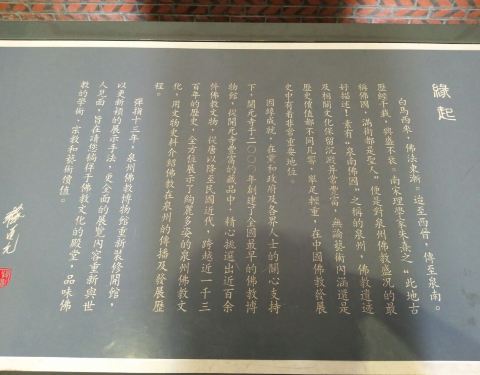 緣起
白馬西來，佛法東漸。迨至西晉，傳至泉南。
歷經千載，興盛不衰。南宋理學家朱熹之“此地古
稱佛國，滿街都是聖人”便是對泉州佛教盛況的最
好描述！素有“泉南佛國”之稱的泉州，佛教遺迹
及相關文化保留沉澱異常豐富，無論藝術內涵還是
歷史價值都不同凡響，舉足輕重，在中國佛教發展
史中有着非常重要地位。
因緣成就，在黨和政府及各界人士的關心支持
下，開元寺于二〇〇〇年創建了全國最早的佛教博
物館，從開元寺豐富的藏品中，精心挑選出近百余
件佛教文物，從唐以降至民國近代，跨越近一千三
百年的歷史，全方位展示了絢麗多姿的泉州佛教文
化，用文物史料介紹佛教在泉州的傳播及發展歷
程。
彈指十三年，泉州佛教博物館重新裝修開館，
以更新穎的展示手法，更全面的展覽內容重新與世
人見面，旨在請您徜徉于佛教文化的殿堂，品味佛
教的學術、宗教和藝術價值。